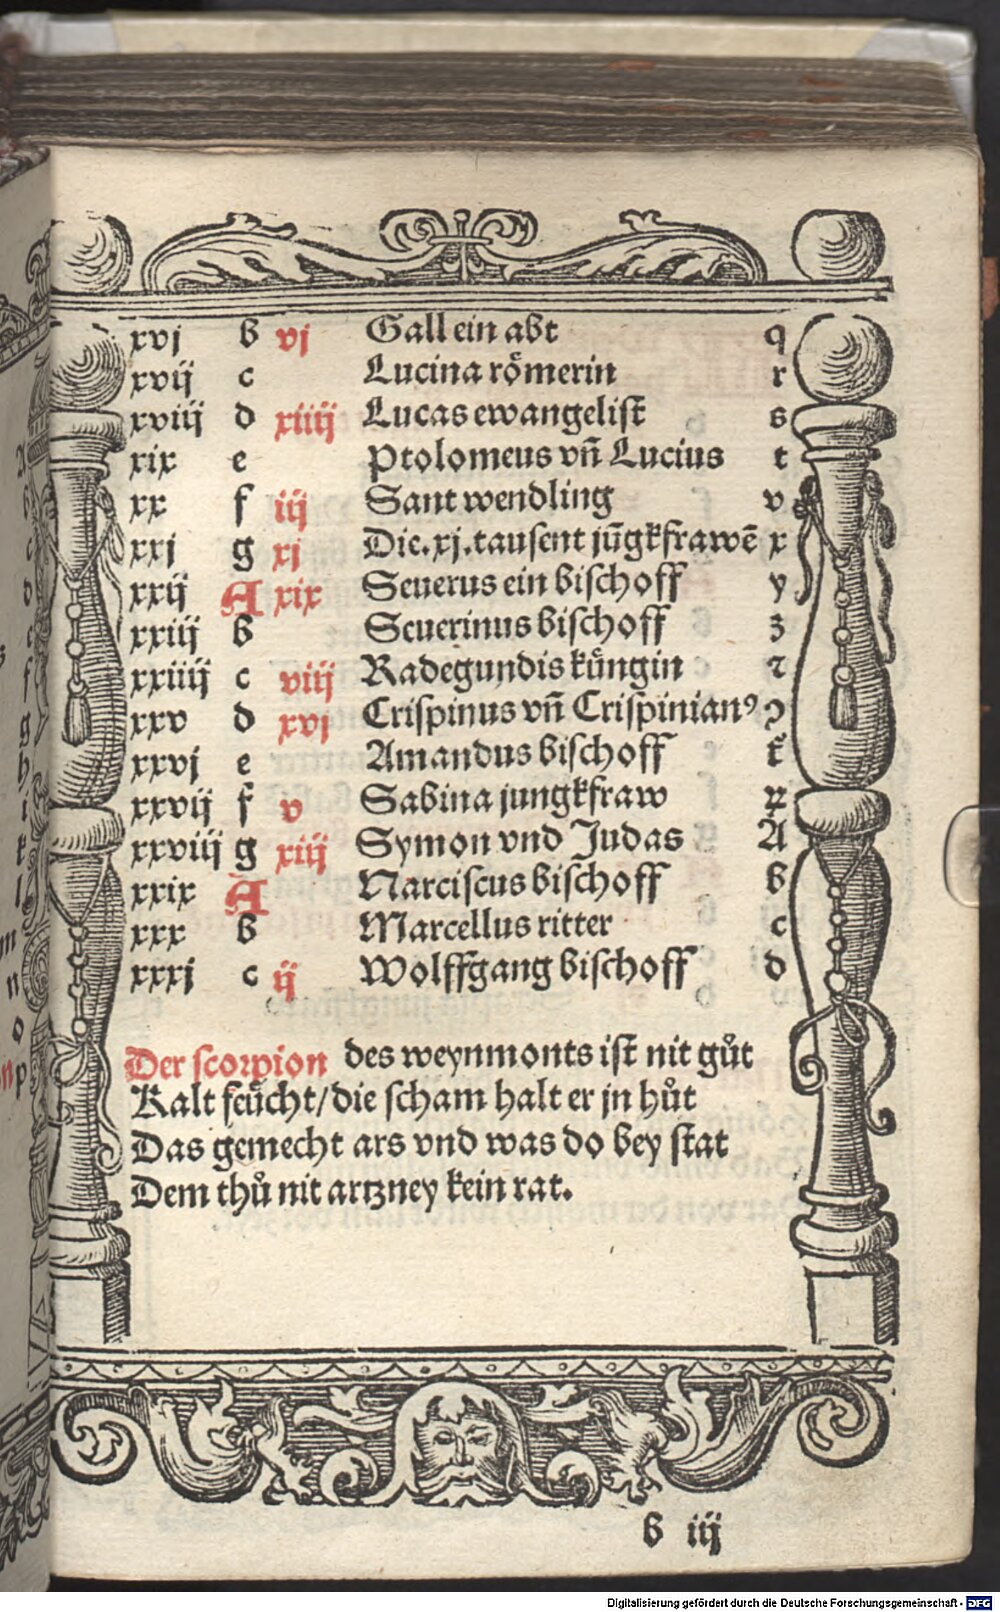 xvj b vj Gall ein abt q
xvij c Lucina römerin r
xviij d xiiij Lucas ewangelist s
xix e Ptolomeus vñ Lucius t
xx f iij Sant wendling v
xxj g xj Die.xj.tausent jūgkfrawē x
xxij A xix Seuerus ein bischoff y
xxiij b Seuerinus bischoff z
xxiiij c viij Radegundis küngin
xxv d xvj Crispinus vñ Crispinianꝰ
xxvj e Amandus bischoff
xxvij f v Sabina jungkfraw
xxviij g xiij Symon vnd Judas A
xxix A Narciscus bischoff b
xxx b Marcellus ritter c
xxxj c ij Wolffgang bischoff d
Der scorpion des weynmonts ist nit gůt
Kalt feücht/die scham halt er jn hůt
Das gemecht ars vnd was do bey stat
Dem thů nit artzney kein rat.
b iij
Digitalisierung gefördert durch die Deutsche Forschungsgemeinschaft - DFG